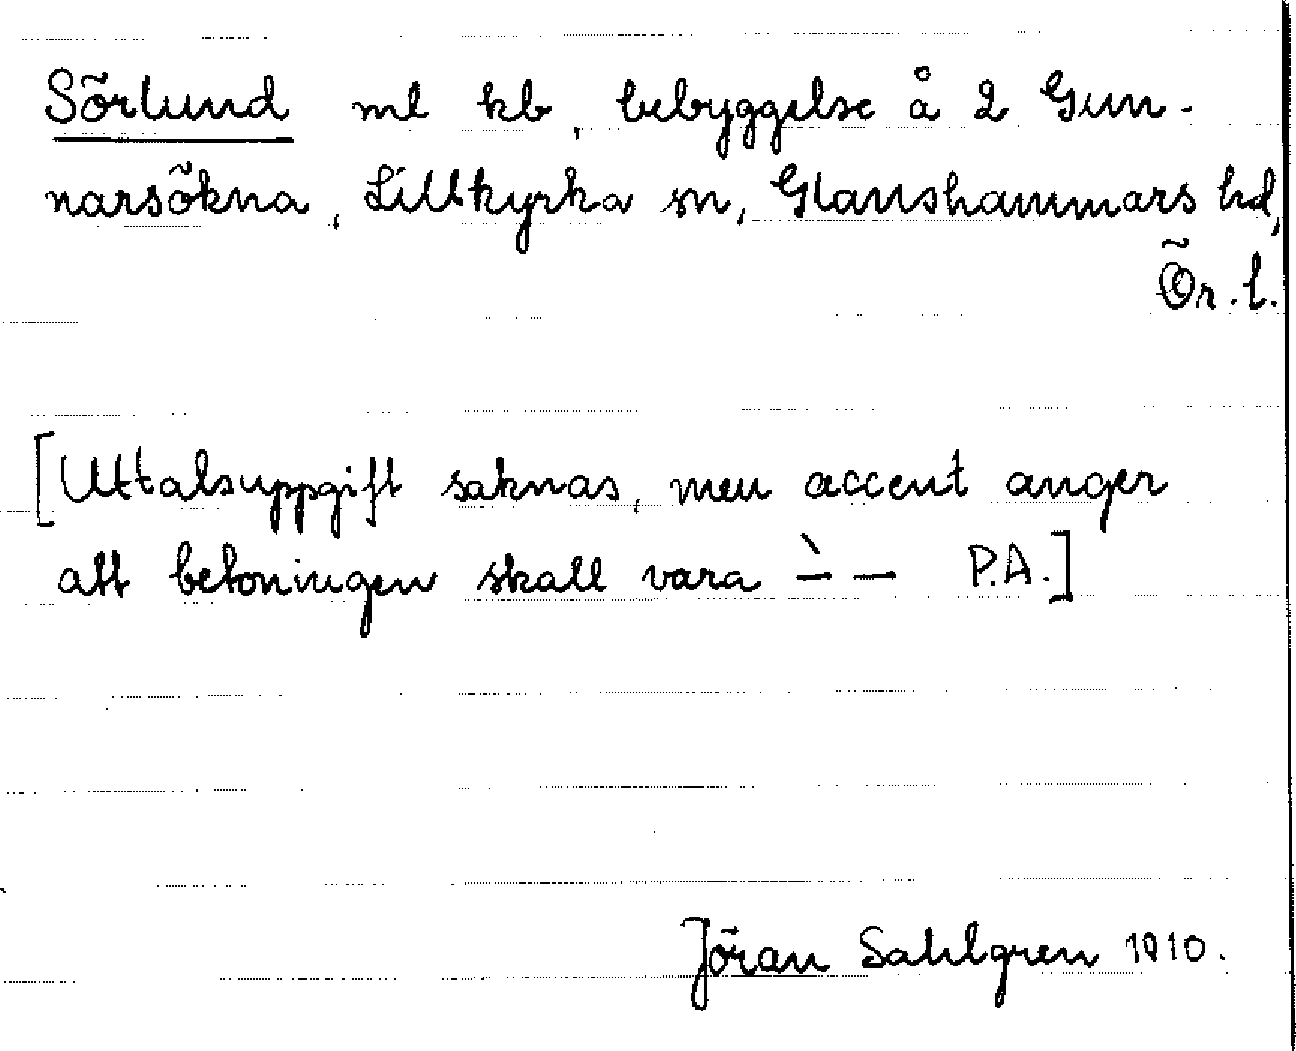 Sörlund ml kb, bebyggelse å 2 Gun-
narsökna, Lillkyrka sn, Glanshammars hd,
Ör. l.
[Uttalsuppgift saknas, men accent anger
att betoningen skall vara –̀ – P.A.]
Jöran Sahlgren 1910.